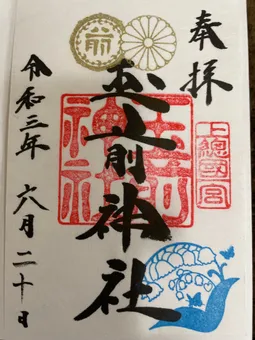 奉拝
上總國一宮
玉前神社
玉前神社
令和三年 六月二十日
前